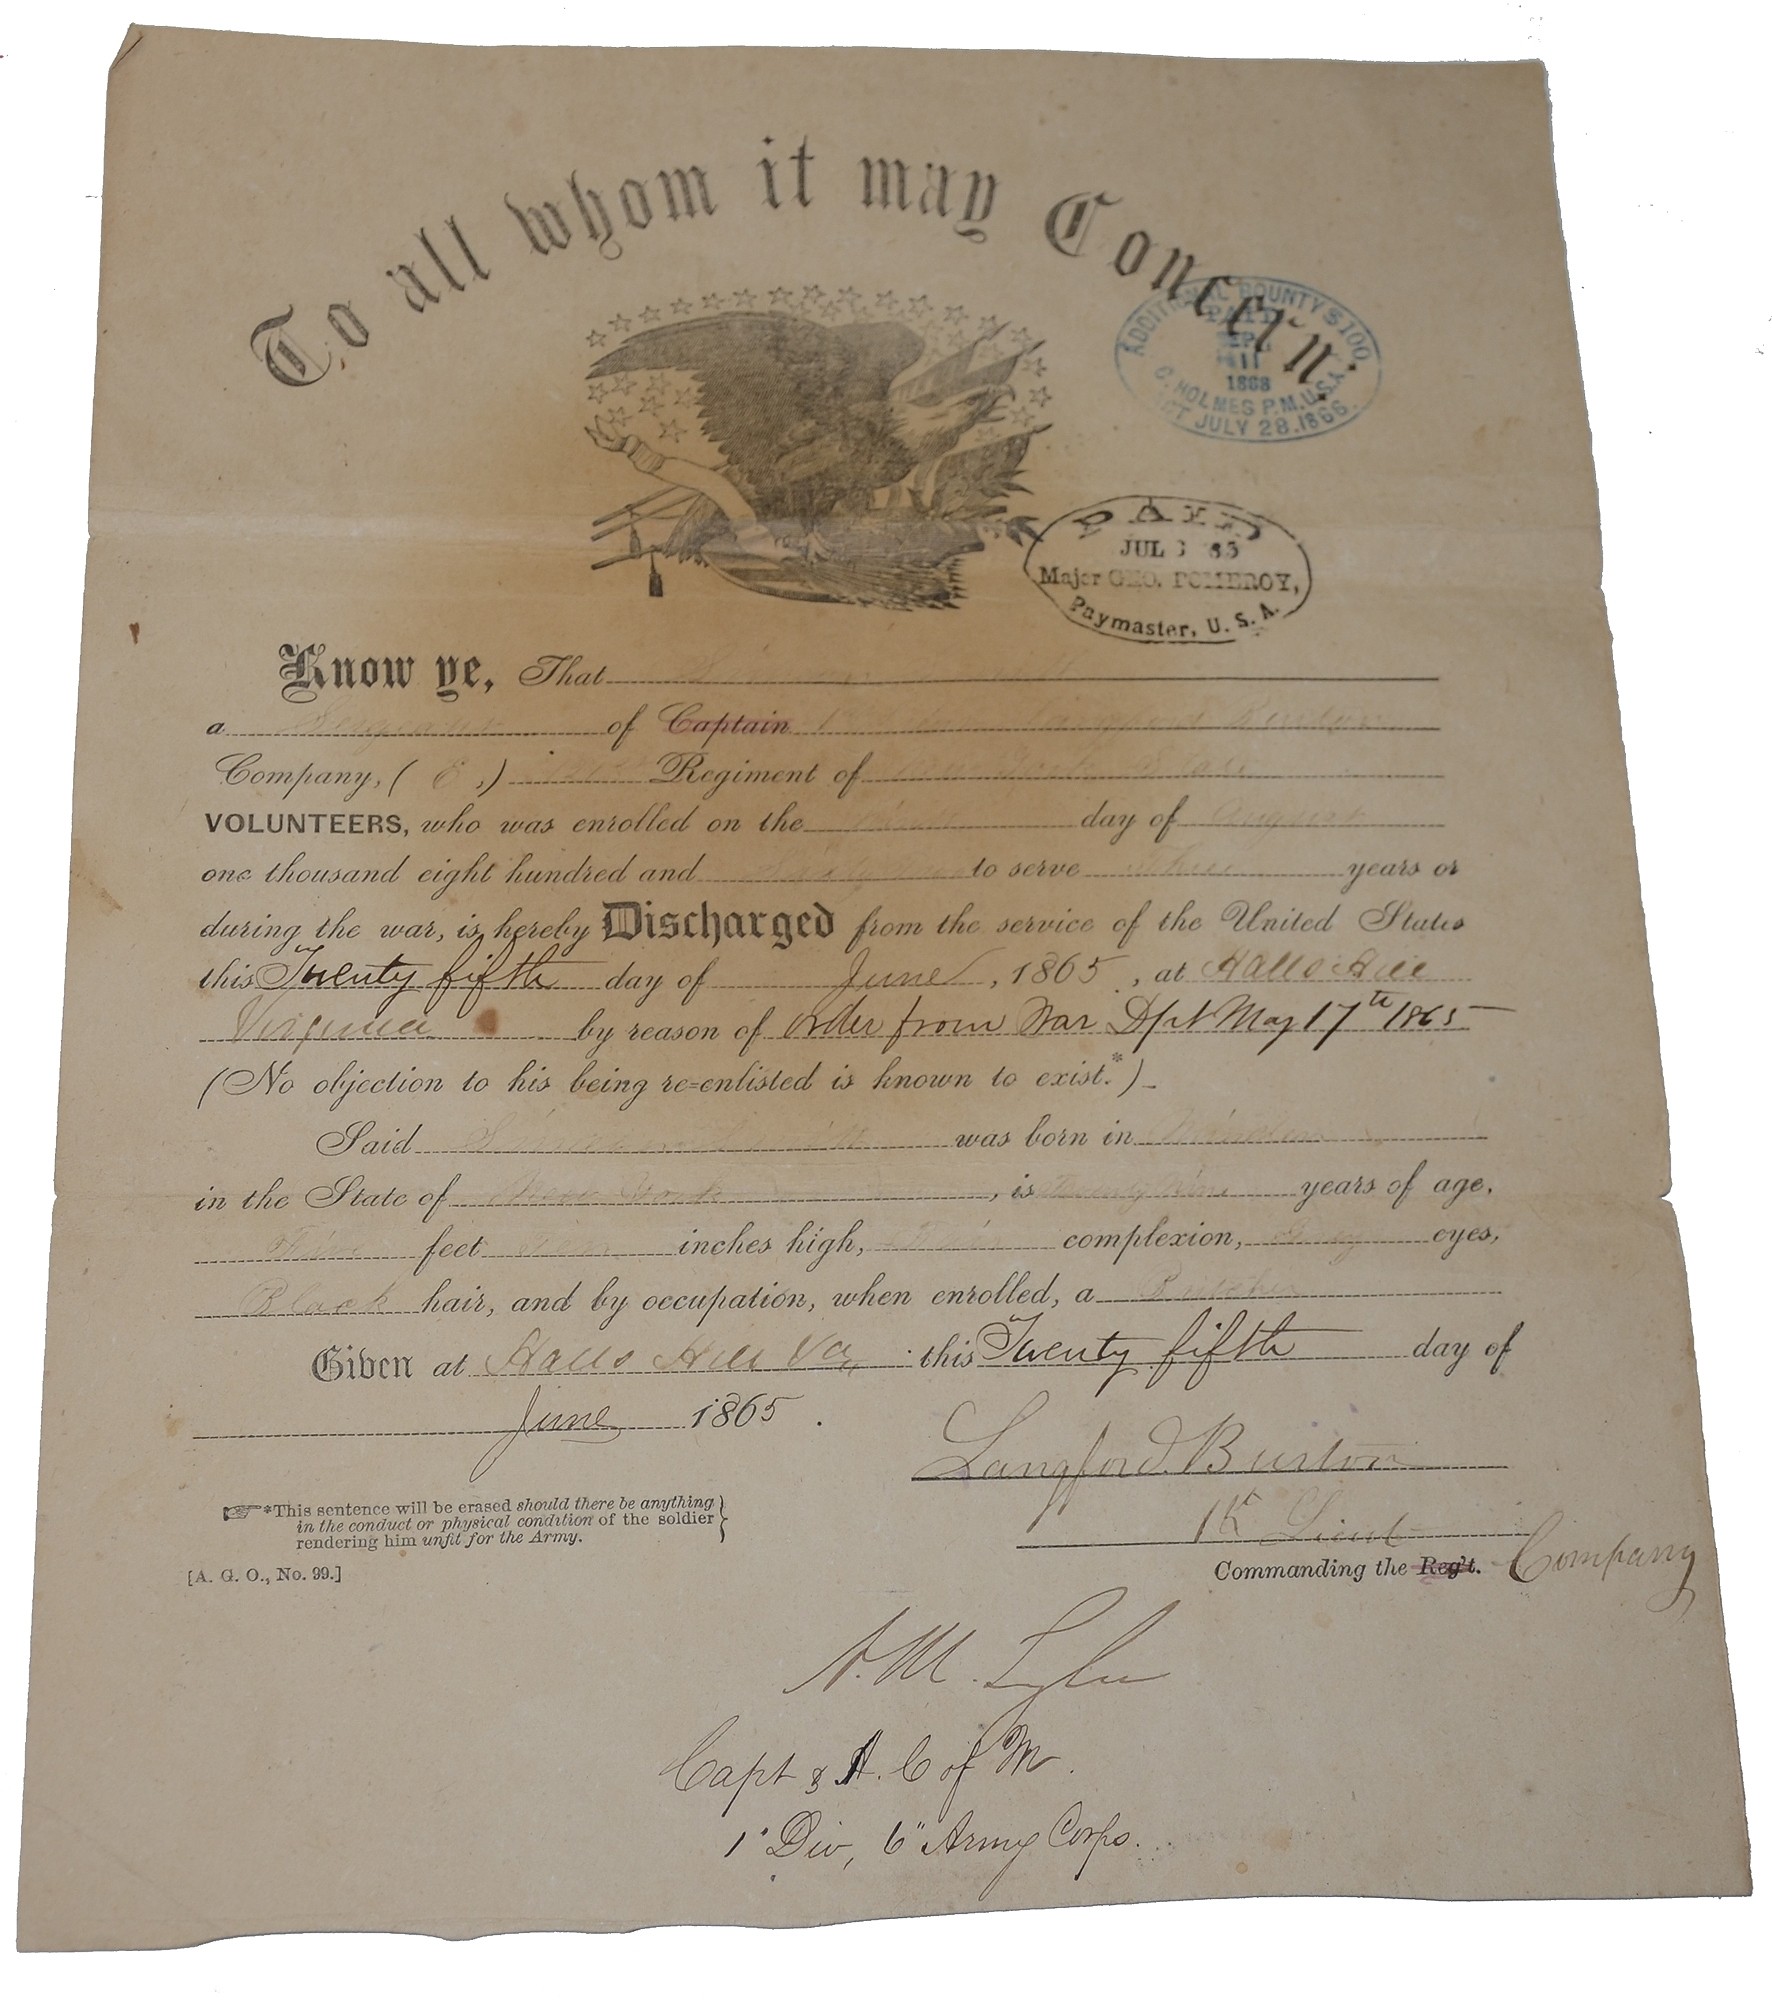 To all whom it may Concern.
ADDITIONAL BOUNTY $100.
PAID
11
1868
HOLMES P.M.U.S.A.
JULY 28.1866.
PAID
JUL 65
Major GEO. POMEROY,
Paymaster, U. S. A.
Know ye, That
a Sergeant of Captain Langford Burton
Company, ( E ,) Regiment of New York State
VOLUNTEERS, who was enrolled on the day of August
one thousand eight hundred and Sixty to serve Three years or
during the war, is hereby Discharged from the service of the United States
this Twenty fifth day of June, 1865, at Halls Hill
Virginia by reason of order from War Dpt May 17th 1865
(No objection to his being re=enlisted is known to exist.*)
Said was born in
in the State of New York, is Twenty Nine years of age,
Five feet inches high, Fair complexion, Gray eyes,
Black hair, and by occupation, when enrolled, a Butcher
Given at Halls Hill Va, this Twenty fifth day of
June 1865.
Langford Burton
1st Lieut
Commanding the Reg't. Company
*This sentence will be erased should there be anything
in the conduct or physical condition of the soldier
rendering him unfit for the Army.
[A. G. O., No. 99.]
A. M. Tyler
Capt & A. C of M.
1" Div, 6" Army Corps.